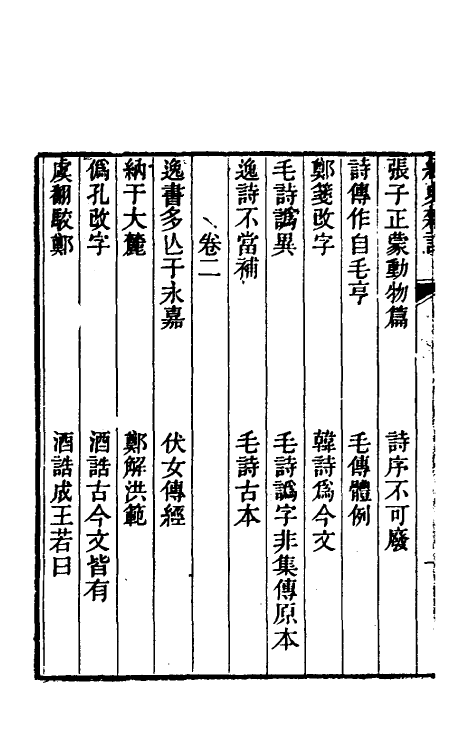 張子正蒙動物篇　詩序不可廢
詩傳作自毛亨　毛傳體例
鄭箋改字　韓詩爲今文
毛詩譌異　毛詩譌字非集傳原本
逸詩不當補　毛詩古本
卷二
逸書多亾于永嘉　伏女傳經
納于大麓　鄭解洪範
僞孔改字　酒誥古今文皆有
虞翻駮鄭　酒誥成王若曰